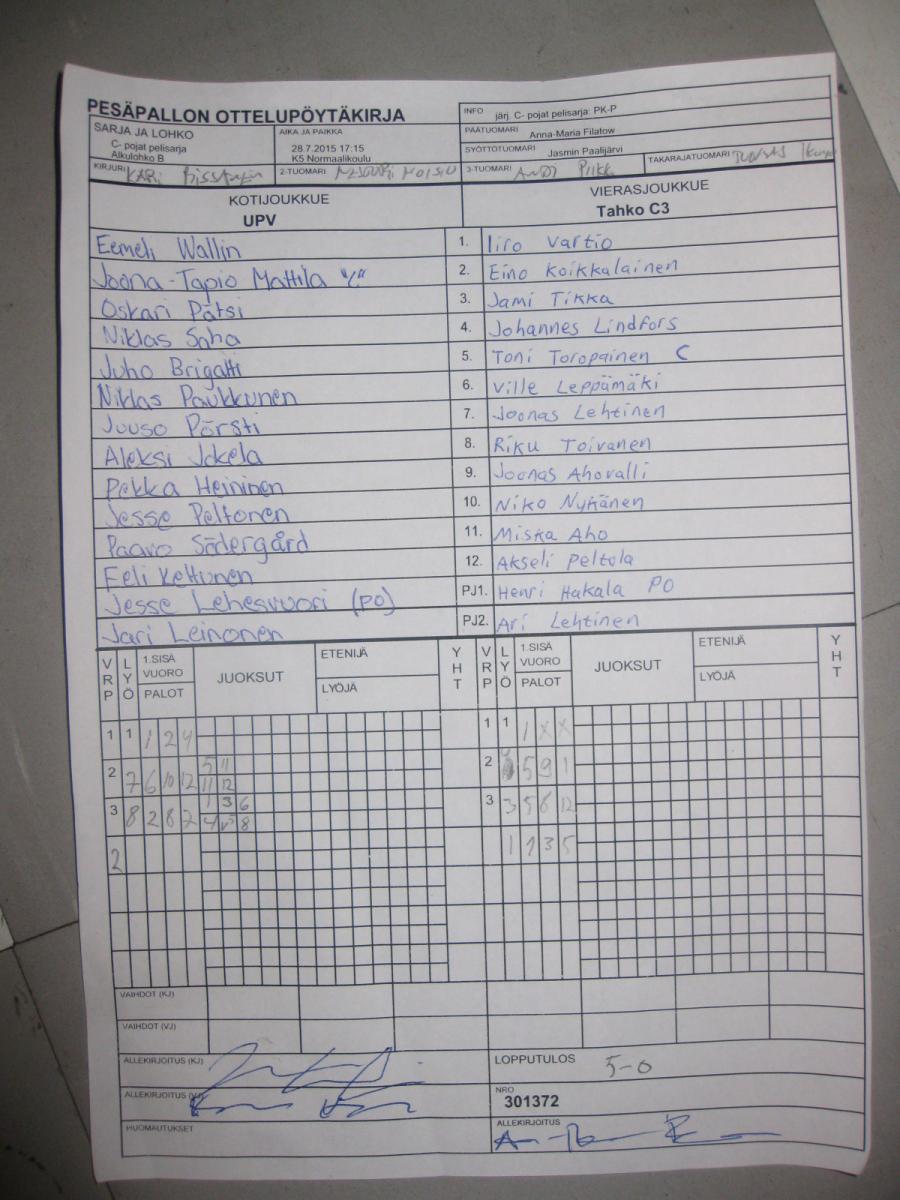 PESÄPALLON OTTELUPÖYTÄKIRJA
INFO järj. C- pojat pelisarja: PK-P
SARJA JA LOHKO
C- pojat pelisarja
Alkulohko B
AIKA JA PAIKKA
28.7.2015 17:15
K5 Normaalikoulu
PÄÄTUOMARI Anna-Maria Filatow
SYÖTTÖTUOMARI Jasmin Paalijärvi
KIRJURI KARI
2-TUOMARI
3-TUOMARI
TAKARAJATUOMARI
KOTIJOUKKUE
UPV
VIERASJOUKKUE
Tahko C3
Eemeli Wallin 1. Iiro Vartio
Joona-Tapio Mattila "C" 2. Eino Koikkalainen
Oskari Pätsi 3. Jami Tikka
Niklas Saha 4. Johannes Lindfors
Juho Brigatti 5. Toni Toropainen C
Niklas Paukkunen 6. Ville Leppämäki
Juuso Pörsti 7. Joonas Lehtinen
Aleksi Jokela 8. Riku Toivanen
Pekka Heininen 9. Joonas Ahovalli
Jesse Peltonen 10. Niko Nykänen
Paavo Södergård 11. Miska Aho
Eeli Kettunen 12. Akseli Peltola
Jesse Lehesvuori (PO) PJ1. Henri Hakala PO
Jari Leinonen PJ2. Ari Lehtinen
VRP LYÖ 1.SISÄ VUORO PALOT JUOKSUT ETENIJÄ LYÖJÄ YHT VRP LYÖ 1.SISÄ VUORO PALOT JUOKSUT ETENIJÄ LYÖJÄ YHT
1 1 1 2 4 1 1 1 X X
2 7 6 10 12 5 11 2 5 9 1
11 12
3 8 2 8 2 1 3 6 3 3 5 6 12
4 8
2 1 1 3 5
VAIHDOT (KJ)
VAIHDOT (VJ)
ALLEKIRJOITUS (KJ)
LOPPUTULOS 5-0
ALLEKIRJOITUS (VJ)
NRO
301372
HUOMAUTUKSET
ALLEKIRJOITUS